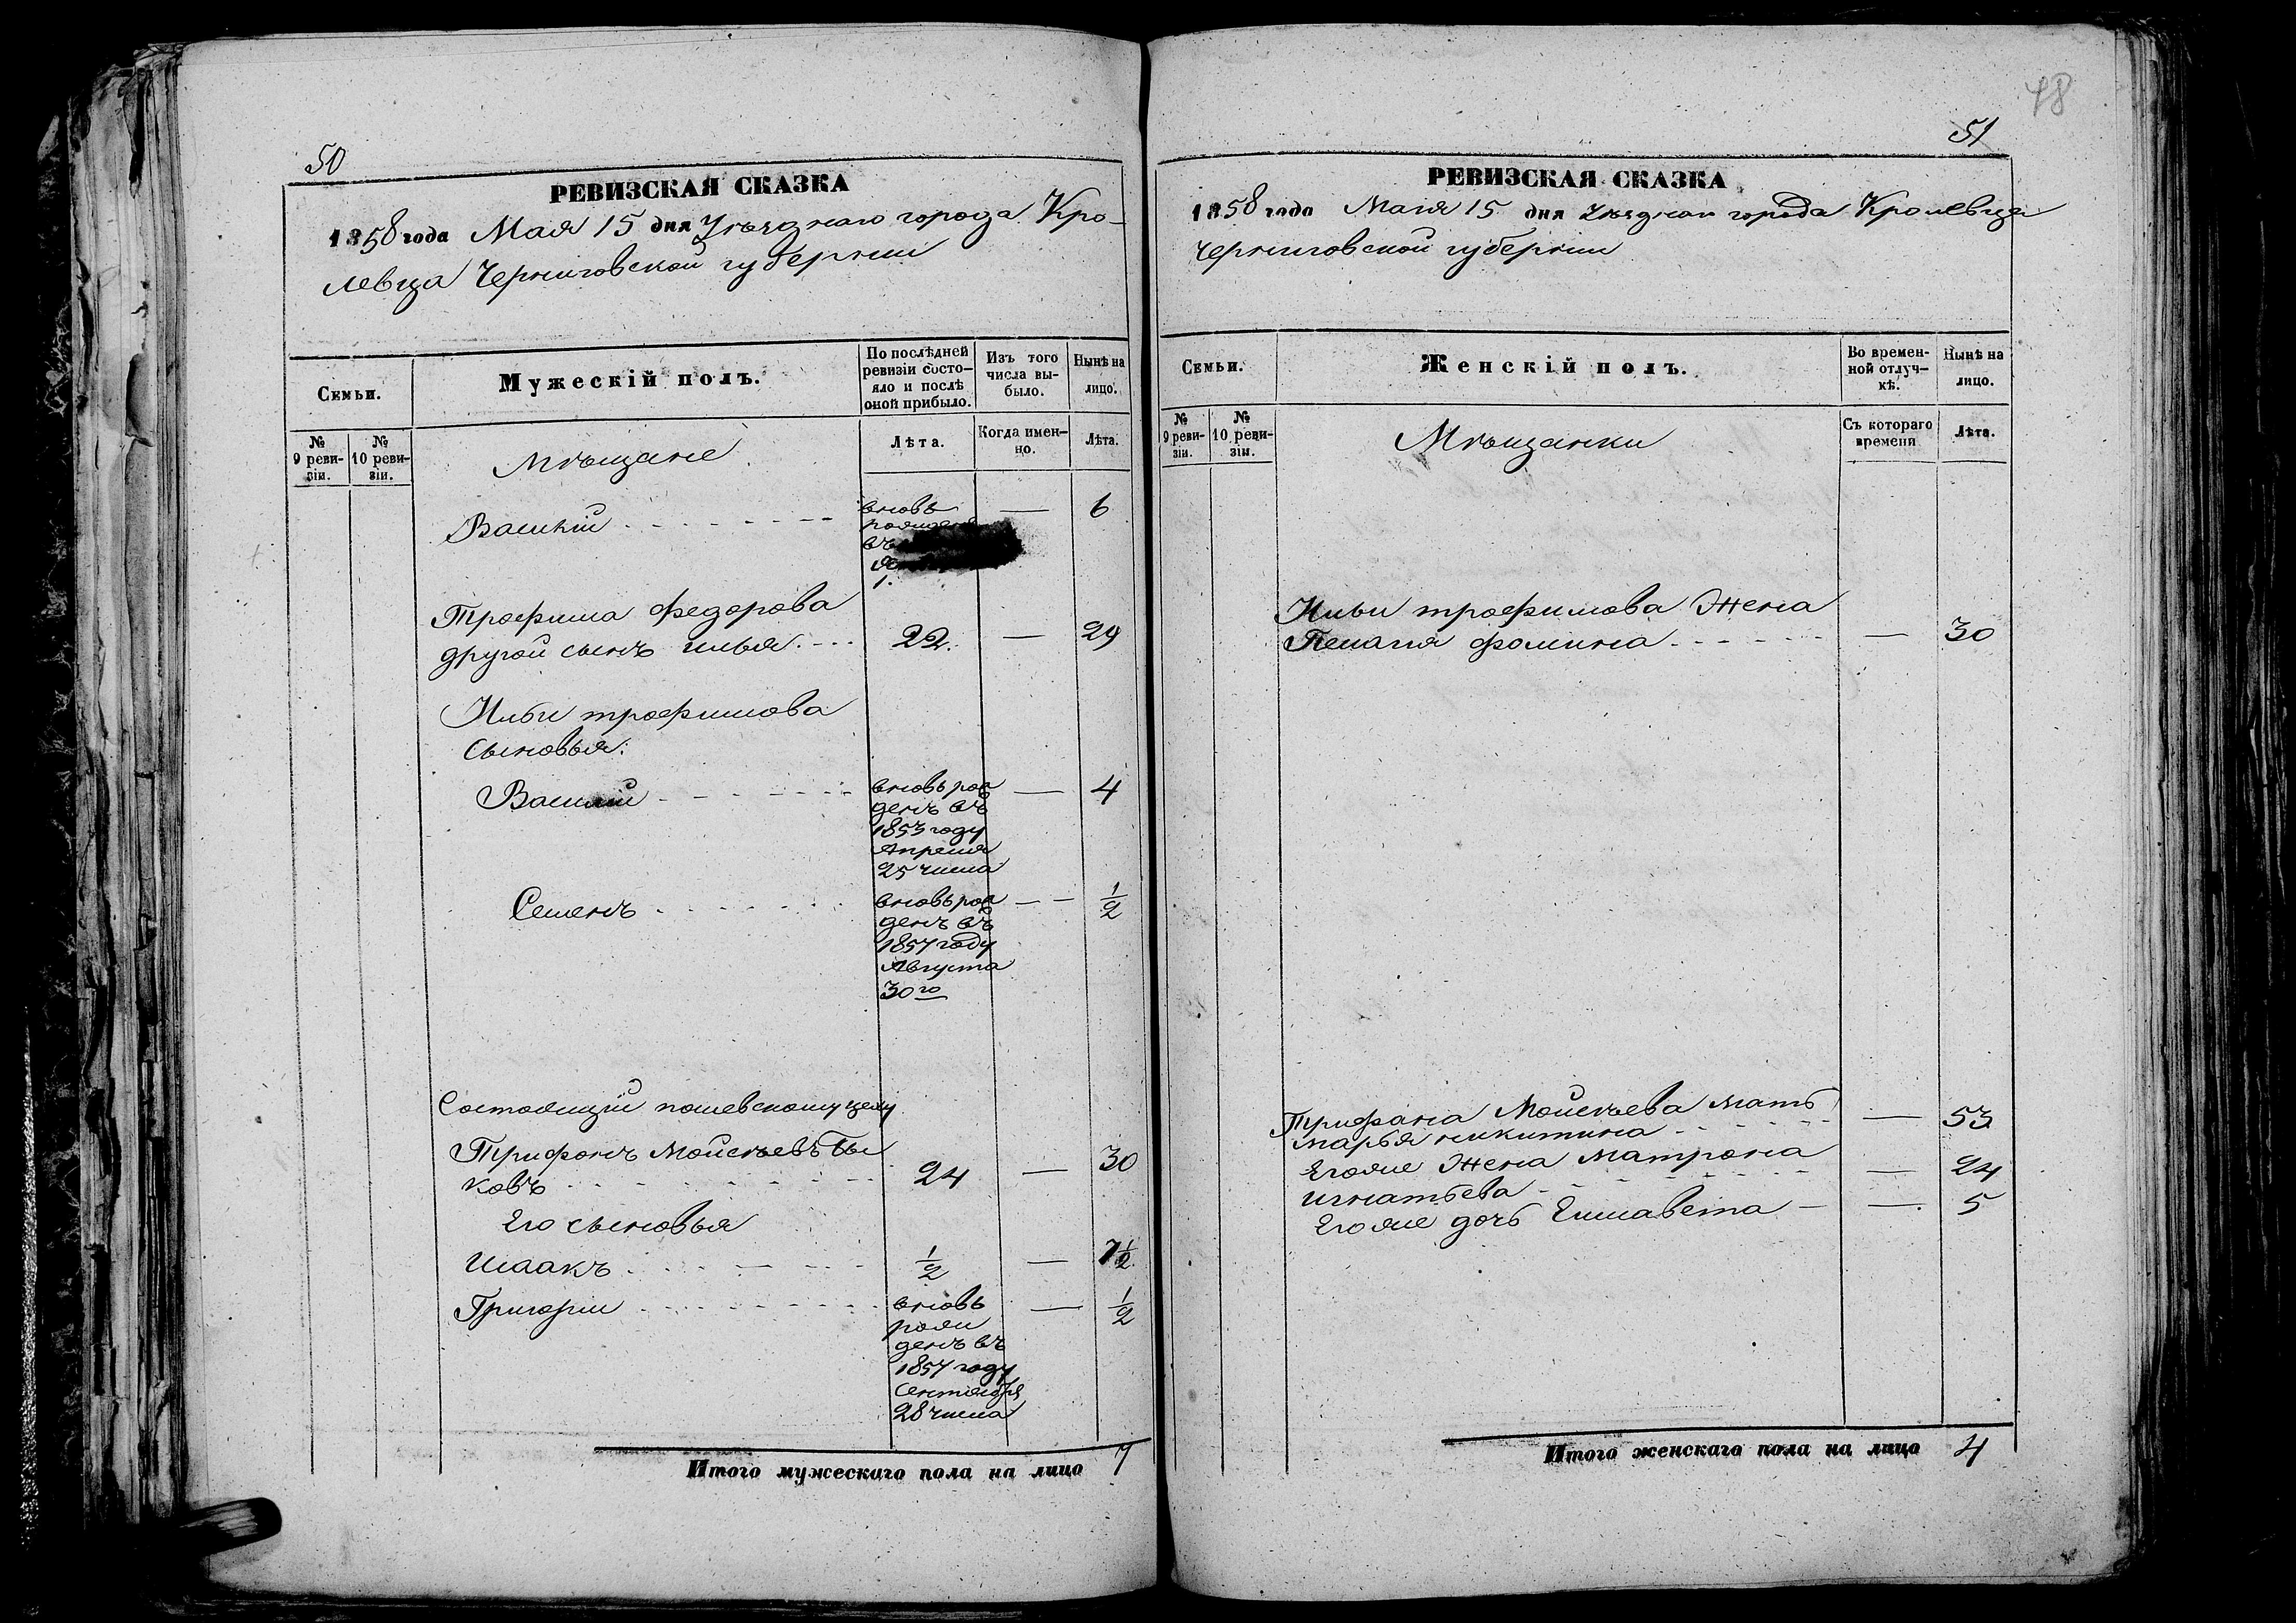 50
РЕВИЗСКАЯ СКАЗКА
1858 года Мая 15 дня Уѣзднаго города Кро-
левца Черниговской губерніи
Семьи.
Мужескій полъ.
По послѣдней ревизіи состо-яло и послѣ оной прибыло.
Изъ того числа вы-было.
Нынѣ на лицо.
№ 9 реви-зіи.
№ 10 реви-зіи.
Мѣщане
Лѣта.
Когда имен-но.
Лѣта.
Василій вновь — 6
рожденъ
въ
1.
Трофима Федорова
другой сынъ илья 22. — 29
Ильи трофимова
сыновья:
Василій вновь рож — 4
денъ въ
1853 году
Апреля
25 числа
Семенъ вновь рож — 1/2
денъ въ
1857 году
Августа
30го
Состоящій
Трифонъ Моисѣевъ Бы
ковъ 24 — 30
Его сыновья
Исаакъ 1/2 — 7 1/2
Григорій вновь — 1/2
рож
денъ въ
1857 году
Сентября
28 числа
Итого мужескаго пола на лицо 7
48
51
РЕВИЗСКАЯ СКАЗКА
1858 года Маія 15 дня Уѣзднаго города Кролевца
Черниговской губерніи
Семьи.
Женскій полъ.
Во времен-ной отлуч-кѣ.
Нынѣ на лицо.
№ 9 реви-зіи.
№ 10 реви-зіи.
Мѣщанки
Съ котораго времени
Лѣта.
Ильи трофимова Жена
Пелагія фомина — 30
Трифона Моисѣева мать — 53
марья никитина
Егоже Жена Матрона — 24
игнатьева
Егоже дочь Елисавета — 5
Итого женскаго пола на лицо 4